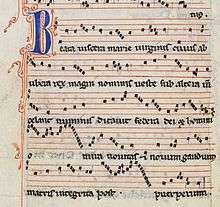 Beata viscera marie virginis cuius ad
ubera rex magni nominis veste sub altera vim
celans numinis dictavit federa dei & homini
o mira novitas & novum gaudium
matris integrita post puerperium.